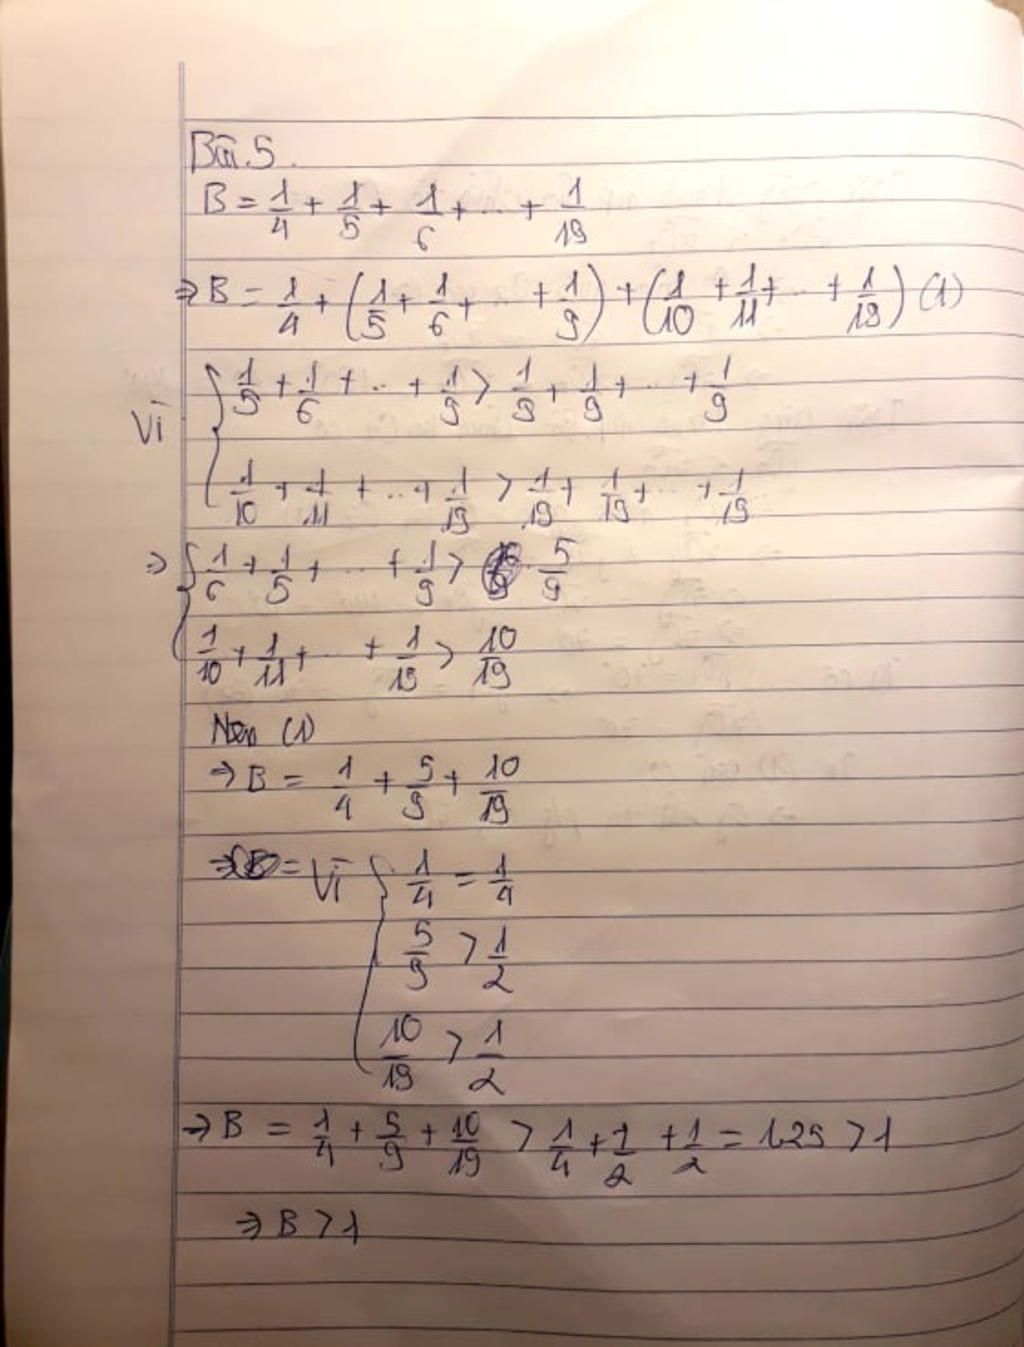 Bài 5.
B = 1/4 + 1/5 + 1/6 + ... + 1/19
⇒ B = 1/4 + (1/5 + 1/6 + ... + 1/9) + (1/10 + 1/11 + ... + 1/19) (1)
Vì { 1/5 + 1/6 + .. + 1/9 > 1/9 + 1/9 + ... + 1/9
1/10 + 1/11 + ... + 1/19 > 1/19 + 1/19 + ... + 1/19
⇒ { 1/6 + 1/5 + ... + 1/9 > 5/9
1/10 + 1/11 + ... + 1/19 > 10/19
Nên (1)
⇒ B = 1/4 + 5/9 + 10/19
⇒ = Vì { 1/4 = 1/4
5/9 > 1/2
10/19 > 1/2
⇒ B = 1/4 + 5/9 + 10/19 > 1/4 + 1/2 + 1/2 = 1.25 > 1
⇒ B > 1